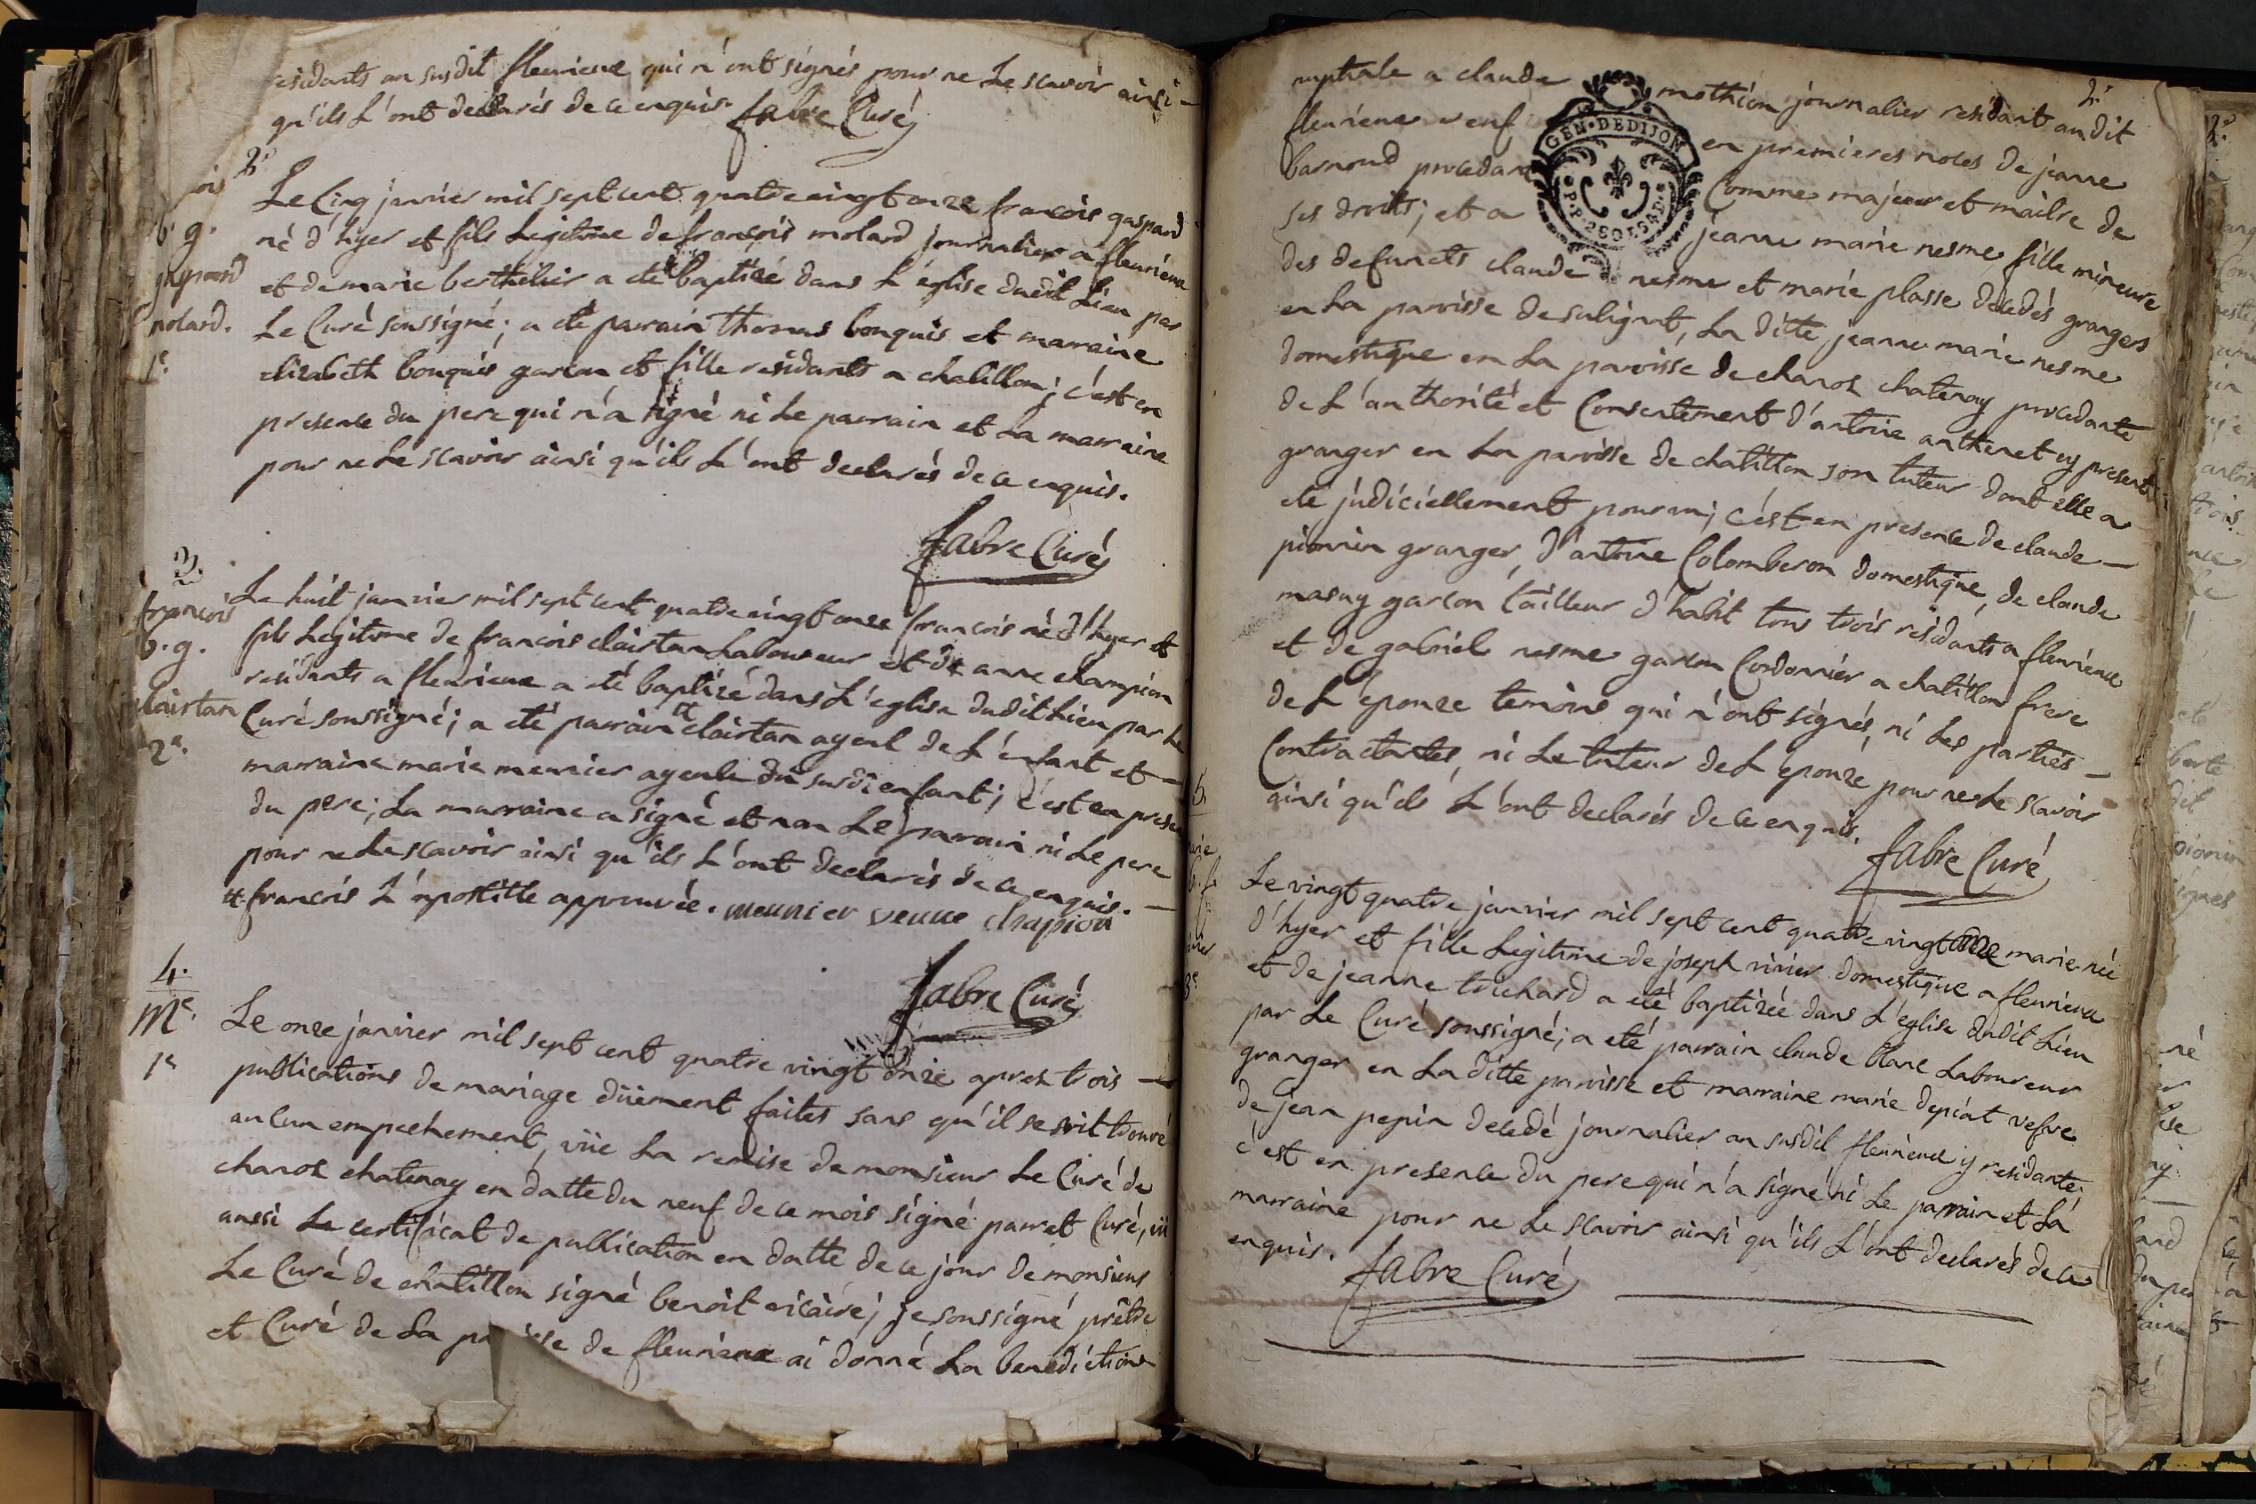 residants au susdit fleurieux qui n'ont signés pour ne Le scavoir ainsi
qu'ils L'ont declarés de ce enquis. fabre Curé
2e
b. g.
gaspard
molard.
1e
Le Cinq janvier mil sept cent quatre vingt onze françois gaspard
né d'hyer et fils Legitime de françois molard journalier a fleurieux
et de marie berthelier a eté baptizé dans L'église dudit Lieu par
Le Curé soussigné; a eté parrain thomas bouquis et marraine
elizabeth bouquis garcon et fille residants a chatillon; c'est en
presence du pere qui n'a signé ni Le parrain et La marraine
pour ne Le scavoir ainsi qu'ils L'ont declarés de ce enquis.
fabre Curé
3.
françois
b. g.
clairtan
2e.
Le huit janvier mil sept cent quatre vingt onze françois né d'hyer et
fils Legitime de françois clairtan Laboureur et de anne champion
residants a fleurieux a eté baptizé dans L'eglise dudit Lieu par Le
Curé soussigné; a eté parrain # clairtan ayeul de L'enfant et
marraine marie meunier ayeule du susdi enfant; c'est en presen
du pere; La marraine a signé et non Le parrain ni Le pere
pour ne Le scavoir ainsi qu'ils L'ont declarés de ce enquis.
# françois L'apostille approuvée. meunier veuve chapion
fabre Curé
4.
Me.
1e
Le onze janvier mil sept cent quatre vingt onze apres trois
publications de mariage düement faites sans qu'il se soit trouvé
aucun empechement, vüe La remise de monsieur Le Curé de
chanoz chatenay en datte du neuf de ce mois signé parret Curé, vü
aussi Le certificat de publication en datte de ce jour de monsieur
Le Curé de chatillon signé benoit vicaire; je soussigné prêtre
et Curé de La paroisse de fleurieux ai donné La benediction
nuptiale a claude mathion journalier residant audit
fleurieux veuf en premieres noces de jeanne
barnoud procedant Comme majeur et maitre de
ses droits; et a jeanne marie nesme fille mineure
des defuncts claude nesme et marie plasse decedés grangers
en La paroisse de sulignat, La ditte jeanne marie nesme
domestique en La paroisse de chanoz chatenay procedante
de L'authorité et Consentement d'antoine anthenet cy present
granger en La paroisse de chatillon son tuteur dont elle a
eté judiciellement pourvu; c'est en presence de claude
pionnin granger, d'antoine Colomberon domestique, de claude
masuy garcon tailleur d'habit tous trois residants a fleurieux
et de gabriel nesme garcon Cordonnier a chatillon frere
de L'epouze temoins qui n'ont signés, ni Les parties
Contractantes, ni Le tuteur de L'epouze, pour ne Le scavoir
ainsi qu'ils L'ont declarés de ce enquis.
fabre Curé
GEN. DE DIJON
Le vingt quatre janvier mil sept cent quatre vingt onze marie née
d'hyer et fille Legitime de joseph vivier domestique a fleurieux
et de jeanne trichard a eté baptizée dans L'église dudit Lieu
par Le Curé soussigné; a eté parrain claude blanc Laboureur
granger en La ditte paroisse et marraine marie depiat vefve
de jean pepin decedé journalier au susdit fleurieux y residante
c'est en presence du pere qui n'a signé ni Le parrain et La
marraine pour ne Le scavoir ainsi qu'ils L'ont declarés de ce
enquis. fabre Curé